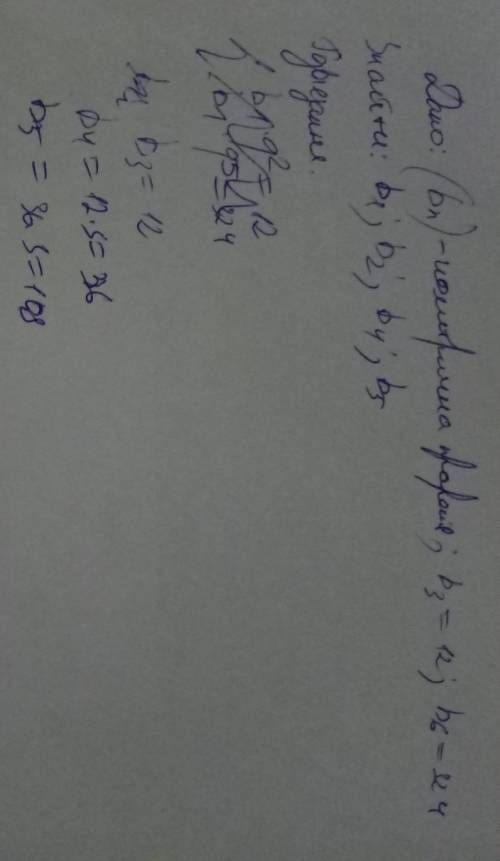 Дано: (bn) - геометрична прогресія; b3 = 12; b6 = 324
Знайти: b1; b2; b4; b5
b1q² = 12
b1 q5 = 324
b3 = 12
b4 = 12·3 = 36
b5 = 36·3 = 108